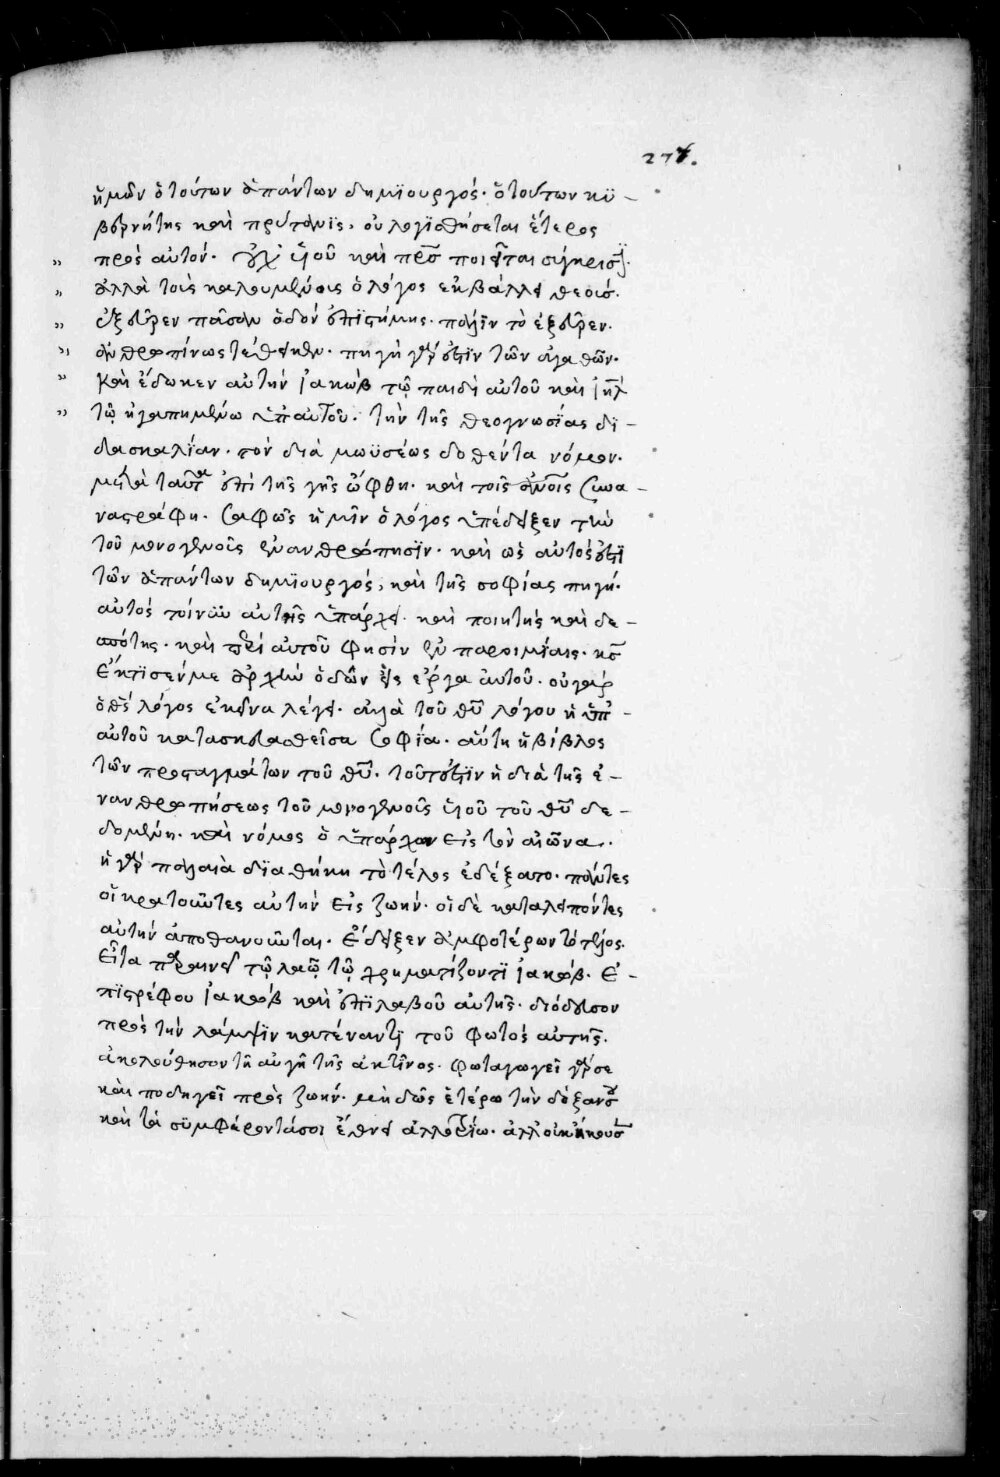 277.
ἡμῶν ὁ τούτων ἁπάντων δημϊουργός· ὁ τούτων κϋ-
βερνήτης καὶ πρύτανϊς, οὐ λογϊσθήσεται ἕτερος
πρὸς αὐτόν· οὐχ υἱοῦ καὶ πρς ποιεῖται σύγκρισιν·
ἀλλὰ τοῖς καλουμένοις ὁ λόγος ἐκβάλλει θεοῖς·
ἐξεῦρεν πᾶσαν ὁδόν ἐπιστήμης· πάλιν τὸ ἐξεῦρεν·
ἀνθρωπίνως τέθεικεν· πηγὴ γάρ ἐστϊν τῶν ἀγαθῶν·
Καὶ ἔδωκεν αὐτὴν ἰακώβ τῷ παιδὶ αὐτοῦ καὶ ιηλ
τῷ ἠγαπημένω ὑπ αὐτοῦ· τὴν τῆς θεογνωσίας δϊ-
δασκαλίαν· τὸν διὰ μωϋσέως δοθέντα νόμον·
μετὰ ταῦτα ἐπὶ τῆς γῆς ὤφθη· καὶ τοῖς ἀνοις συνα-
νεστράφη· Σαφῶς ἡμῖν ὁ λόγος ὑπέδειξεν τὴν
τοῦ μονογενοῦς ἐνανθρώπησϊν· καὶ ὡς αὐτός ἐστϊ
τῶν ἁπάντων δημϊουργός, καὶ τῆς σοφίας πηγή·
αὐτὸς τοίνυν αὐτῆς ὑπάρχει καὶ ποιητὴς καὶ δε-
σπότης· καὶ περὶ αὐτοῦ φησὶν ἐν παροιμίαις· κς
ἔκτϊσεν με ἀρχὴν ὁδῶν εἰς ἔργα αὐτοῦ· οὐ γὰρ
ὁ θς λόγος ἐκεῖνα λέγει· ἀλλὰ τοῦ θυ λόγου ἡ ὑπ
αὐτοῦ κατασκευασθεῖσα σοφΐα· αὕτη ἡ βίβλος
τῶν προσταγμάτων τοῦ θυ· τοῦτ ἐστϊν ἡ διὰ τῆς ἐ-
νανθρωπήσεως τοῦ μονογενοῦς υἱοῦ τοῦ θυ δε-
δομένη· καὶ νόμος ὁ ὑπάρχων εἰς τὸν αἰῶνα·
ἡ γὰρ παλαιὰ δϊαθήκη τὸ τέλος ἐδέξατο· πάντες
οἱ κρατοῦντες αὐτὴν εἰς ζωήν· οἱ δὲ καταλειπόντες
αὐτὴν ἀποθανοῦνται· ἔδειξεν ἀμφοτέρων τὸ τέλος·
Εἶτα παραινεῖ τῷ λαῷ τῷ χρηματίζοντϊ ἰακώβ· Ἐ-
πϊστρέφου ἰακώβ καὶ ἐπϊλαβοῦ αὐτῆς· διόδευσον
πρὸς τὴν λάμψϊν κατέναντϊ τοῦ φωτὸς αὐτῆς·
ἀκολούθησον τῇ αὐγῇ τῆς ἀκτῖνος· φωταγωγεῖ γάρ σε
καὶ ποδηγεῖ πρὸς ζωήν· μὴ δῶς ἑτέρω τὴν δόξαν σου
καὶ τὰ σϋμφέροντά σοι ἔθνει ἀλλοτρίω· ἀλλ οὐκ ἤκουσεν